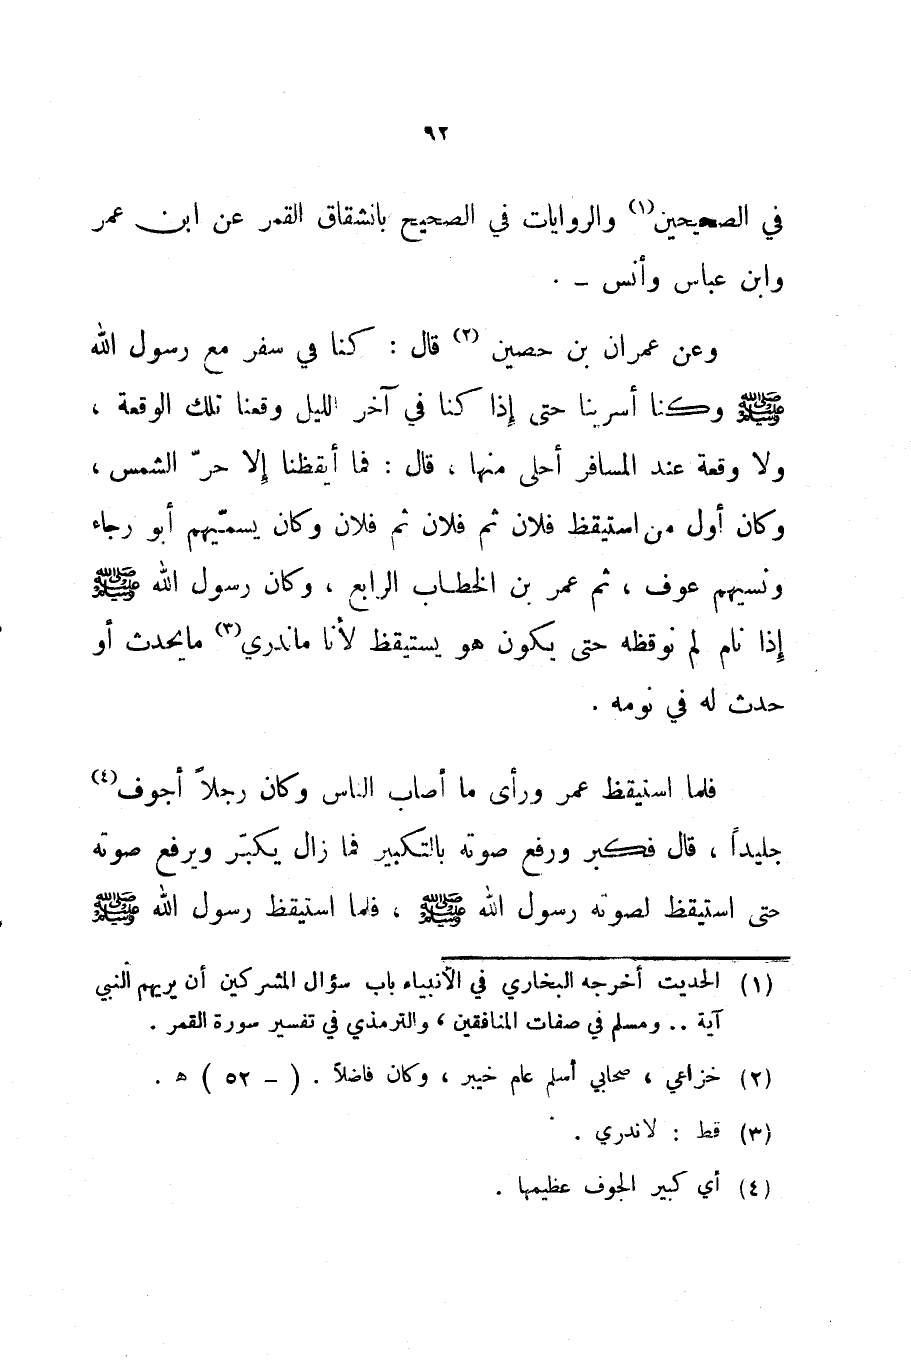 ٩٢
في الصحيحين(١) والروايات في الصحيح بانشقاق القمر عن ابن عمر
وابن عباس وأنس - .
وعن عمران بن حصين (٢) قال : كنا في سفر مع رسول الله
ﷺ وكنا أسرينا حتى إذا كنا في آخر الليل وقعنا تلك الوقعة ،
ولا وقعة عند المسافر أحلى منها ، قال : فما أيقظنا إلا حرّ الشمس ،
وكان أول من استيقظ فلان ثم فلان ثم فلان وكان يسمّيهم أبو رجاء
ونسيهم عوف ، ثم عمر بن الخطاب الرابع ، وكان رسول الله ﷺ
إذا نام لم نوقظه حتى يكون هو يستيقظ لأنا ماندري(٣) مايحدث أو
حدث له في نومه .
فلما استيقظ عمر ورأى ما أصاب الناس وكان رجلاً أجوف(٤)
جليداً ، قال فكبر ورفع صوته بالتكبير فما زال يكبّر ويرفع صوته
حتى استيقظ لصوته رسول الله ﷺ ، فلما استيقظ رسول الله ﷺ
(١) الحديث أخرجه البخاري في الأنبياء باب سؤال المشركين أن يريهم النبي
آية .. ومسلم في صفات المنافقين ، والترمذي في تفسير سورة القمر .
(٢) خزاعي ، صحابي أسلم عام خيبر ، وكان فاضلاً . ( - ٥٢ ) ه .
(٣) قط : لاندري .
(٤) أي كبير الجوف عظيمها .